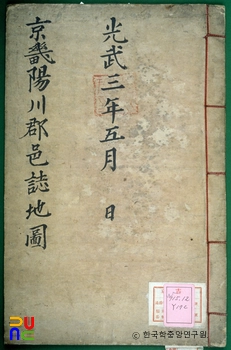 光武三年五月 日
京畿陽川郡邑誌地圖
古
915.12
한국학중앙연구원